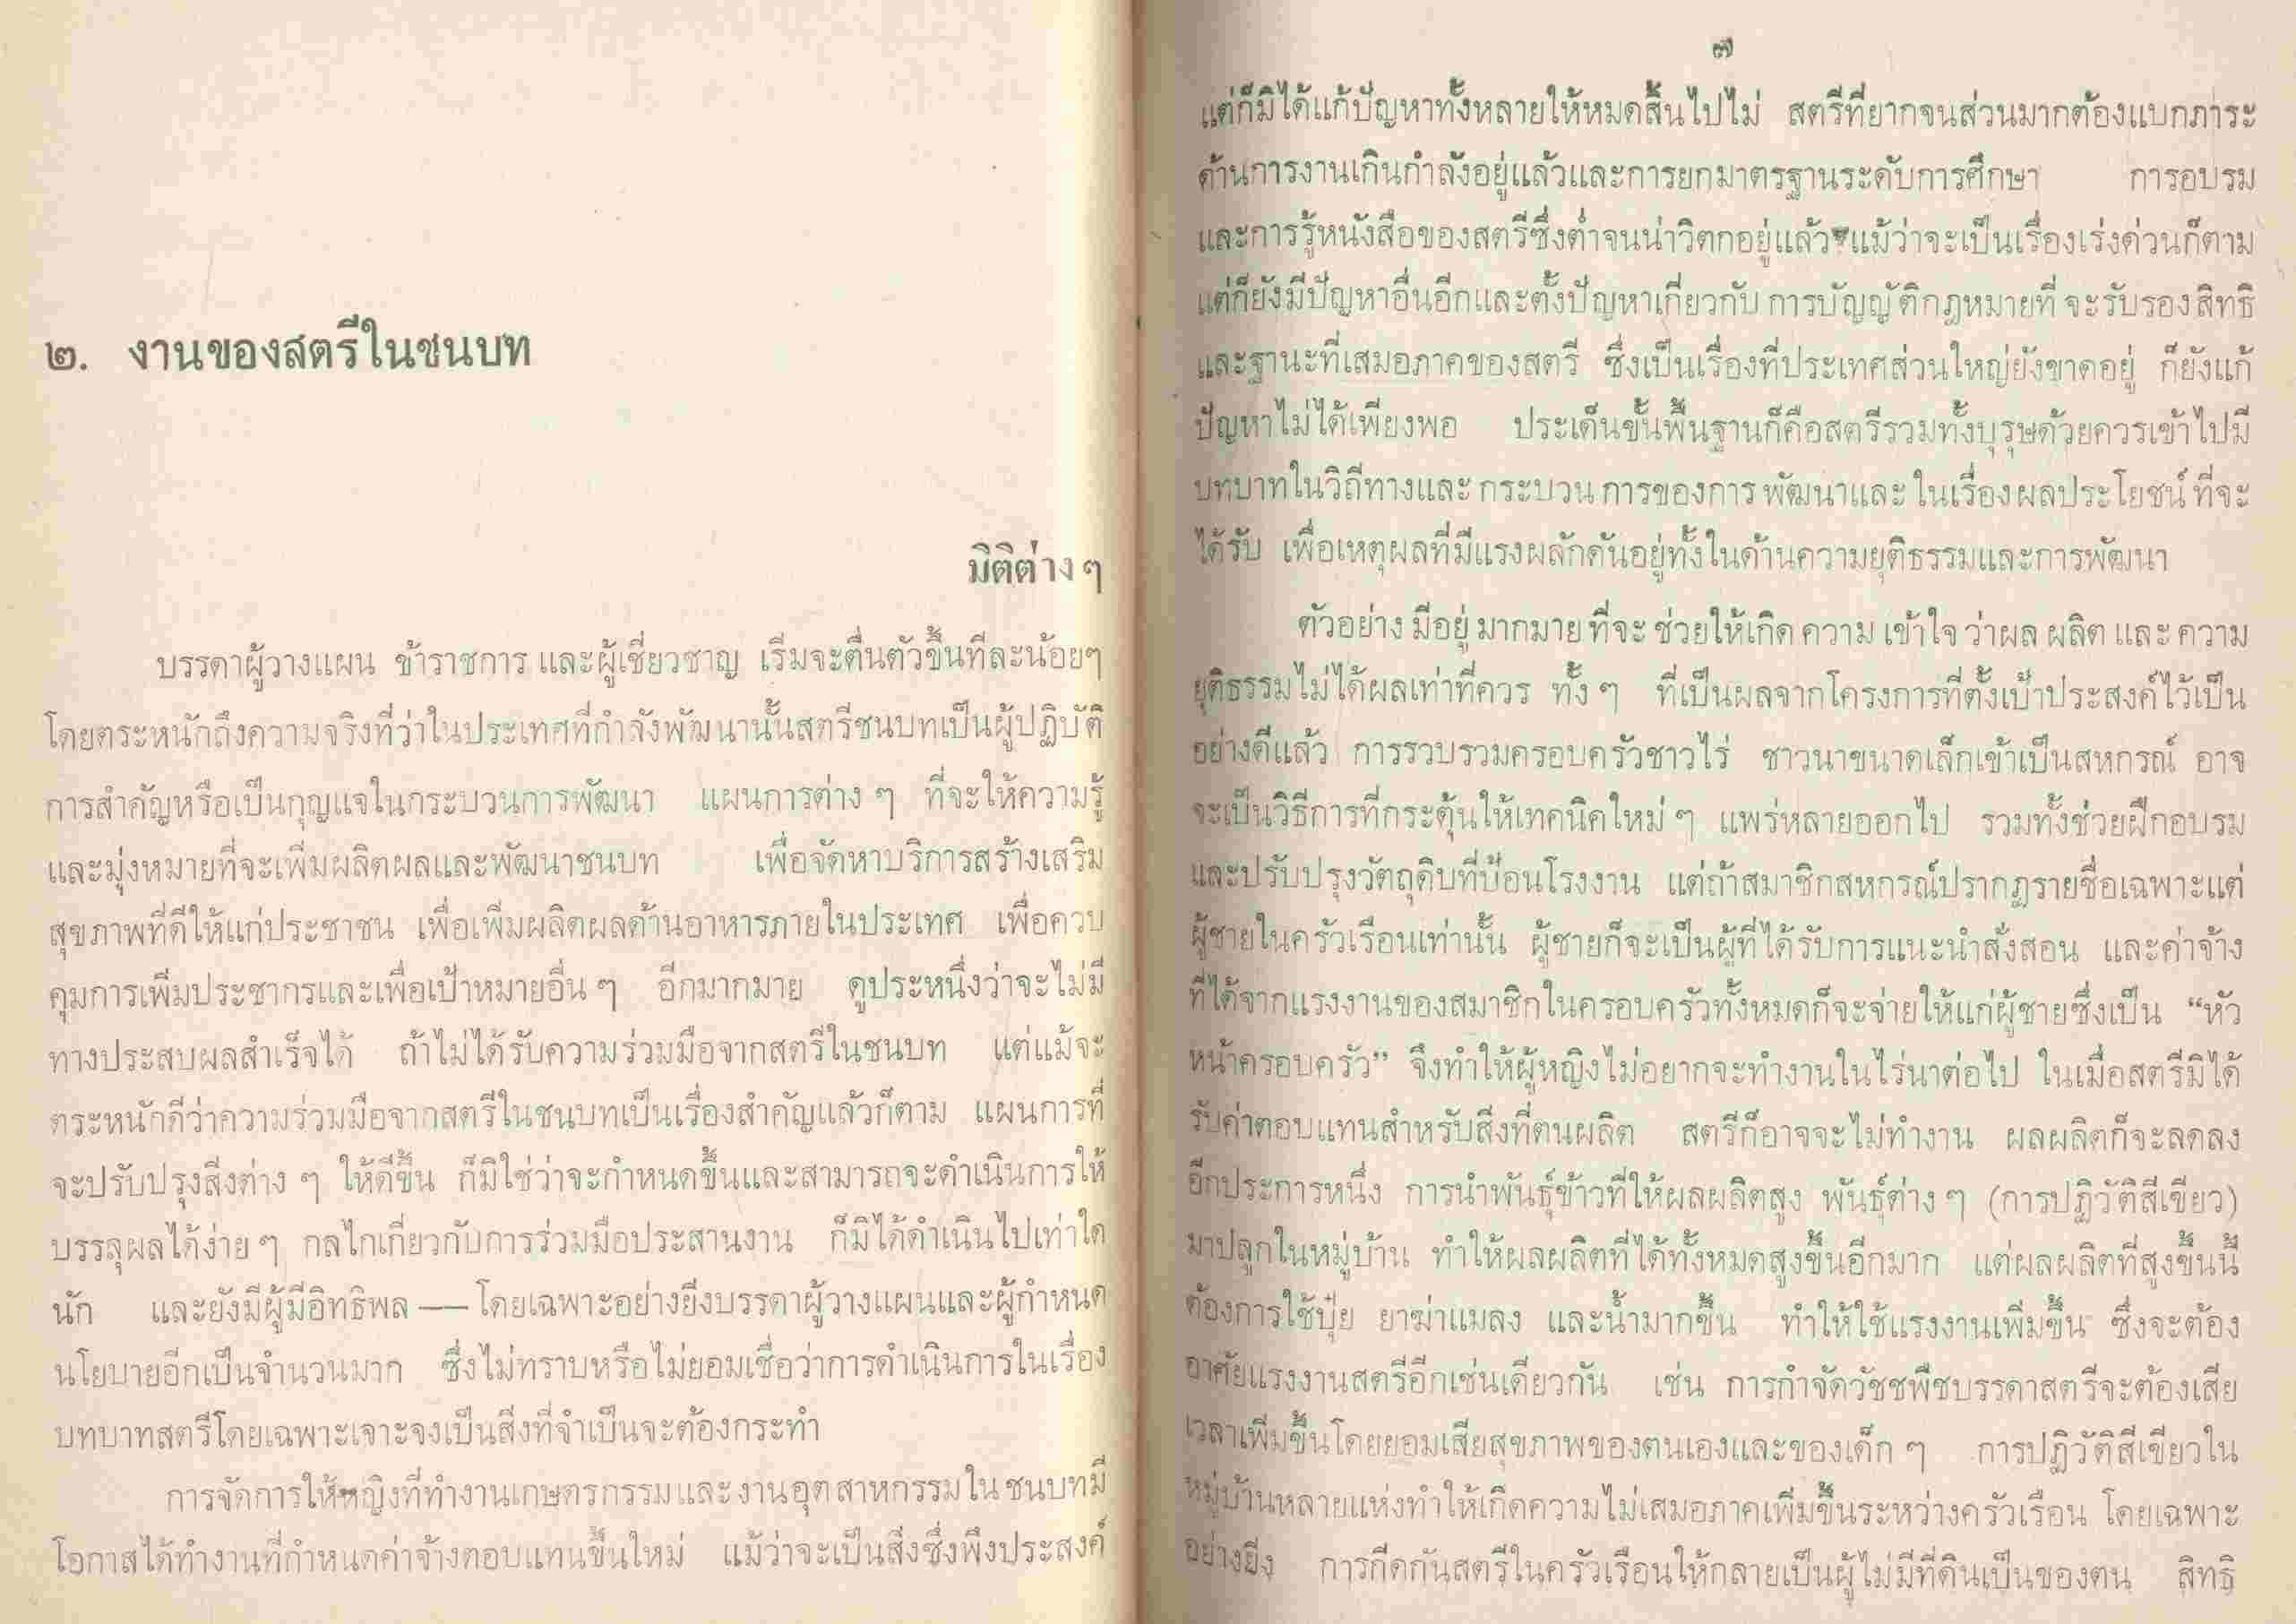 ๒. งานของสตรีในชนบท
มิติต่าง ๆ
บรรดาผู้วางแผน ข้าราชการ และผู้เชี่ยวชาญ เริ่มจะตื่นตัวขึ้นทีละน้อยๆ
โดยตระหนักถึงความจริงที่ว่าในประเทศที่กำลังพัฒนานั้นสตรีชนบทเป็นผู้ปฏิบัติ
การสำคัญหรือเป็นกุญแจในกระบวนการพัฒนา แผนการต่าง ๆ ที่จะให้ความรู้
และมุ่งหมายที่จะเพิ่มผลิตผลและพัฒนาชนบท เพื่อจัดหาบริการสร้างเสริม
สุขภาพที่ดีให้แก่ประชาชน เพื่อเพิ่มผลิตผลด้านอาหารภายในประเทศ เพื่อควบ
คุมการเพิ่มประชากรและเพื่อเป้าหมายอื่น ๆ อีกมากมาย ดูประหนึ่งว่าจะไม่มี
ทางประสบผลสำเร็จได้ ถ้าไม่ได้รับความร่วมมือจากสตรีในชนบท แต่แม้จะ
ตระหนักดีว่าความร่วมมือจากสตรีในชนบทเป็นเรื่องสำคัญแล้วก็ตาม แผนการที่
จะปรับปรุงสิ่งต่าง ๆ ให้ดีขึ้น ก็มิใช่ว่าจะกำหนดขึ้นและสามารถจะดำเนินการให้
บรรลุผลได้ง่าย ๆ กลไกเกี่ยวกับการร่วมมือประสานงาน ก็มิได้ดำเนินไปเท่าใด
นัก และยังมีผู้มีอิทธิพล — โดยเฉพาะอย่างยิ่งบรรดาผู้วางแผนและผู้กำหนด
นโยบายอีกเป็นจำนวนมาก ซึ่งไม่ทราบหรือไม่ยอมเชื่อว่าการดำเนินการในเรื่อง
บทบาทสตรีโดยเฉพาะเจาะจงเป็นสิ่งที่จำเป็นจะต้องกระทำ
การจัดการให้หญิงที่ทำงานเกษตรกรรมและงานอุตสาหกรรมในชนบทมี
โอกาสได้ทำงานที่กำหนดค่าจ้างตอบแทนขึ้นใหม่ แม้ว่าจะเป็นสิ่งซึ่งพึงประสงค์
๗
แต่ก็มิได้แก้ปัญหาทั้งหลายให้หมดสิ้นไปไม่ สตรีที่ยากจนส่วนมากต้องแบกภาระ
ด้านการงานเกินกำลังอยู่แล้วและการยกมาตรฐานระดับการศึกษา การอบรม
และการรู้หนังสือของสตรีซึ่งต่ำจนน่าวิตกอยู่แล้ว แม้ว่าจะเป็นเรื่องเร่งด่วนก็ตาม
แต่ก็ยังมีปัญหาอื่นอีกและตั้งปัญหาเกี่ยวกับ การบัญญัติกฎหมายที่ จะรับรองสิทธิ
และฐานะที่เสมอภาคของสตรี ซึ่งเป็นเรื่องที่ประเทศส่วนใหญ่ยังขาดอยู่ ก็ยังแก้
ปัญหาไม่ได้เพียงพอ ประเด็นขั้นพื้นฐานก็คือสตรีรวมทั้งบุรุษด้วยควรเข้าไปมี
บทบาทในวิถีทางและกระบวนการของการพัฒนาและในเรื่องผลประโยชน์ ที่จะ
ได้รับ เพื่อเหตุผลที่มีแรงผลักดันอยู่ทั้งในด้านความยุติธรรมและการพัฒนา
ตัวอย่าง มีอยู่ มากมาย ที่จะ ช่วยให้เกิด ความ เข้าใจ ว่าผล ผลิต และ ความ
ยุติธรรมไม่ได้ผลเท่าที่ควร ทั้ง ๆ ที่เป็นผลจากโครงการที่ตั้งเป้าประสงค์ไว้เป็น
อย่างดีแล้ว การรวบรวมครอบครัวชาวไร่ ชาวนาขนาดเล็กเข้าเป็นสหกรณ์ อาจ
จะเป็นวิธีการที่กระตุ้นให้เทคนิคใหม่ ๆ แพร่หลายออกไป รวมทั้งช่วยฝึกอบรม
และปรับปรุงวัตถุดิบที่ป้อนโรงงาน แต่ถ้าสมาชิกสหกรณ์ปรากฏรายชื่อเฉพาะแต่
ผู้ชายในครัวเรือนเท่านั้น ผู้ชายก็จะเป็นผู้ที่ได้รับการแนะนำสั่งสอน และค่าจ้าง
ที่ได้จากแรงงานของสมาชิกในครอบครัวทั้งหมดก็จะจ่ายให้แก่ผู้ชายซึ่งเป็น “หัว
หน้าครอบครัว” จึงทำให้ผู้หญิงไม่อยากจะทำงานในไร่นาต่อไป ในเมื่อสตรีมิได้
รับค่าตอบแทนสำหรับสิ่งที่ตนผลิต สตรีก็อาจจะไม่ทำงาน ผลผลิตก็จะลดลง
อีกประการหนึ่ง การนำพันธุ์ข้าวที่ให้ผลผลิตสูง พันธุ์ต่าง ๆ (การปฏิวัติสีเขียว)
มาปลูกในหมู่บ้าน ทำให้ผลผลิตที่ได้ทั้งหมดสูงขึ้นอีกมาก แต่ผลผลิตที่สูงขึ้นนี้
ต้องการใช้ปุ๋ย ยาฆ่าแมลง และน้ำมากขึ้น ทำให้ใช้แรงงานเพิ่มขึ้น ซึ่งจะต้อง
อาศัยแรงงานสตรีอีกเช่นเดียวกัน เช่น การกำจัดวัชชพืชบรรดาสตรีจะต้องเสีย
เวลาเพิ่มขึ้นโดยยอมเสียสุขภาพของตนเองและของเด็ก ๆ การปฏิวัติสีเขียวใน
หมู่บ้านหลายแห่งทำให้เกิดความไม่เสมอภาคเพิ่มขึ้นระหว่างครัวเรือน โดยเฉพาะ
อย่างยิ่ง การกีดกันสตรีในครัวเรือนให้กลายเป็นผู้ไม่มีที่ดินเป็นของตน สิทธิ